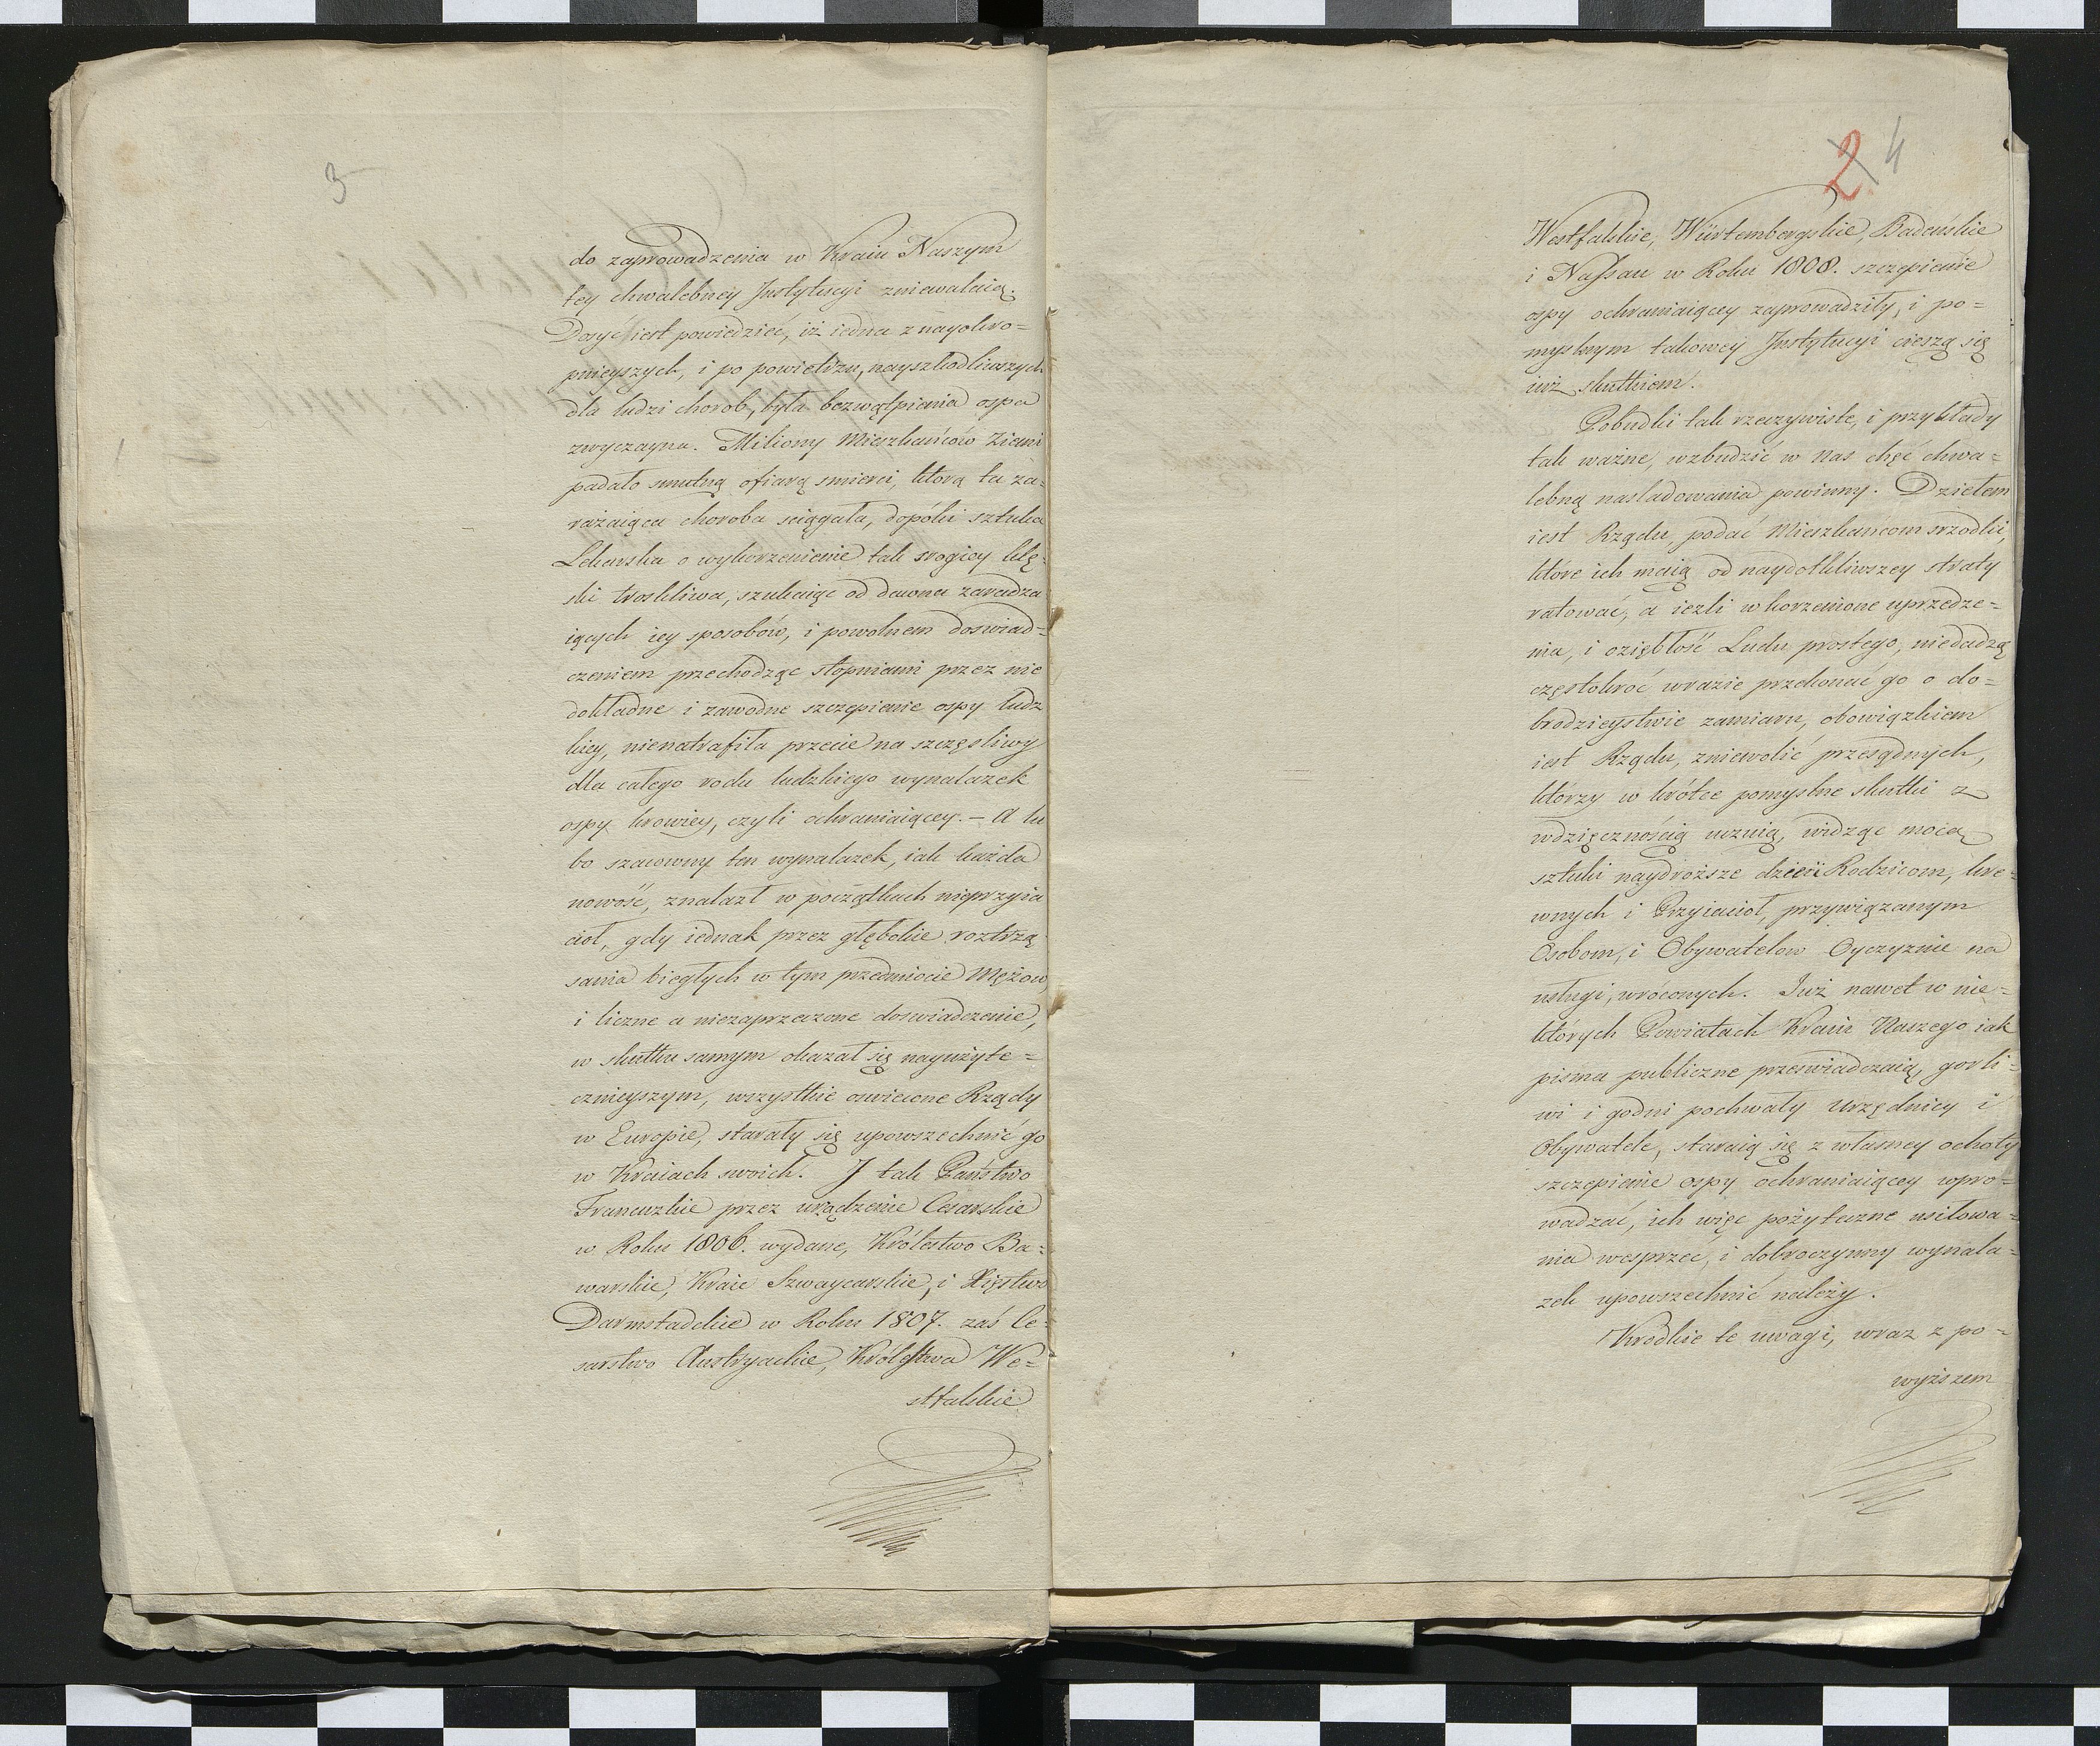 3
do zaprowadzenia w Kraiu Naszym
tey chwalebney Instytucyi zniewalaią.
Dosyć iest powiedzieć, iż iedna z nayokro=
pnieyszych, i po powietrzu, nayszkodliwszych
dla ludzi chorob, była bezwątpienia ospa
zwyczayna. Miliony Mieszkańców Ziemi
padało smutną ofiarą smierci, którą ta za=
rażaiąca choroba sciągała, dopóki sztuka
Lekarska o wykorzenienie tak srogiey klę=
ski troskliwa, szukaiąc od dawna zaradza
iących iey sposobów, i powolnem doswiad=
czeniem przechodząc stopniami przez nie
dokładne i zawodne szczepienie ospy ludz
kiey, nienatrafiła przecie na szczęsliwy
dla całego rodu ludzkiego wynalazek
ospy krowiey, czyli ochraniaiącey. – A lu
bo szacowny ten wynalazek, iak każda
nowość, znalazł w początkach nieprzyia
ciół, gdy iednak przez głębokie roztrzą
sania biegłych w tym przedmiocie Mężow,
i liczne a niezaprzeczone doswiadczenie,
w skutku samym okazał się nayużyte=
cznieyszym, wszystkie oswiecone Rządy
w Europie, starały się upowszechnić go
w Kraiach swoich. I tak Państwo
Francuzkie przez urządzenie Cesarskie
w Roku 1806. wydane, Królestwo Ba=
warskie, Kraie Szwaycarskie, i Xięstwo
Darmstadckie w Roku 1807. zaś Ce=
sarstwo Austryackie, Królestwa We=
stfalskie
2 4
Westfalskie, Würtembergskie, Badeńskie
i Nassau w Roku 1808. szczepienie
ospy ochraniaiącey zaprowadziły, i po=
myslnym takowey Instytucyi cieszą się
iuż skutkiem.
Pobudki tak rzeczywiste, i przykłady
tak ważne, wzbudzić w nas chęć chwa=
lebną nasladowania powinny. Dziełem
iest Rządu, podać Mieszkańcom srzodki,
które ich maią od naydotkliwszey straty
ratować, a iezli wkorzenione uprzedze=
nia, i oziębłość Ludu prostego, niedadzą
częstokroć wrazie przekonać go o do=
brodzieystwie zamiaru, obowiązkiem
iest Rządu, zniewolić przesądnych,
którzy w krótce pomyslne skutki z
wdzięcznością uznią, widząc mocą
sztuki naydroższe dzieci Rodzicom, kre=
wnych i Przyiaciół, przywiązanym
Osobom, i Obywatelow Oyczyznie na
usługi, wróconych. Już nawet w nie=
ktorych Powiatach Kraiu Naszego iak
pisma publiczne przeswiadczaią, gorli=
wi i godni pochwały Urzędnicy i
Obywatele, staraią się z własney ochoty
szczepienie ospy ochraniaiącey wpro=
wadzać, ich więc pożyteczne usiłowa=
nia wesprzec, i dobroczynny wynala=
zek upowszechnić należy.
Krodkie te uwagi, wraz z po=
wyższem